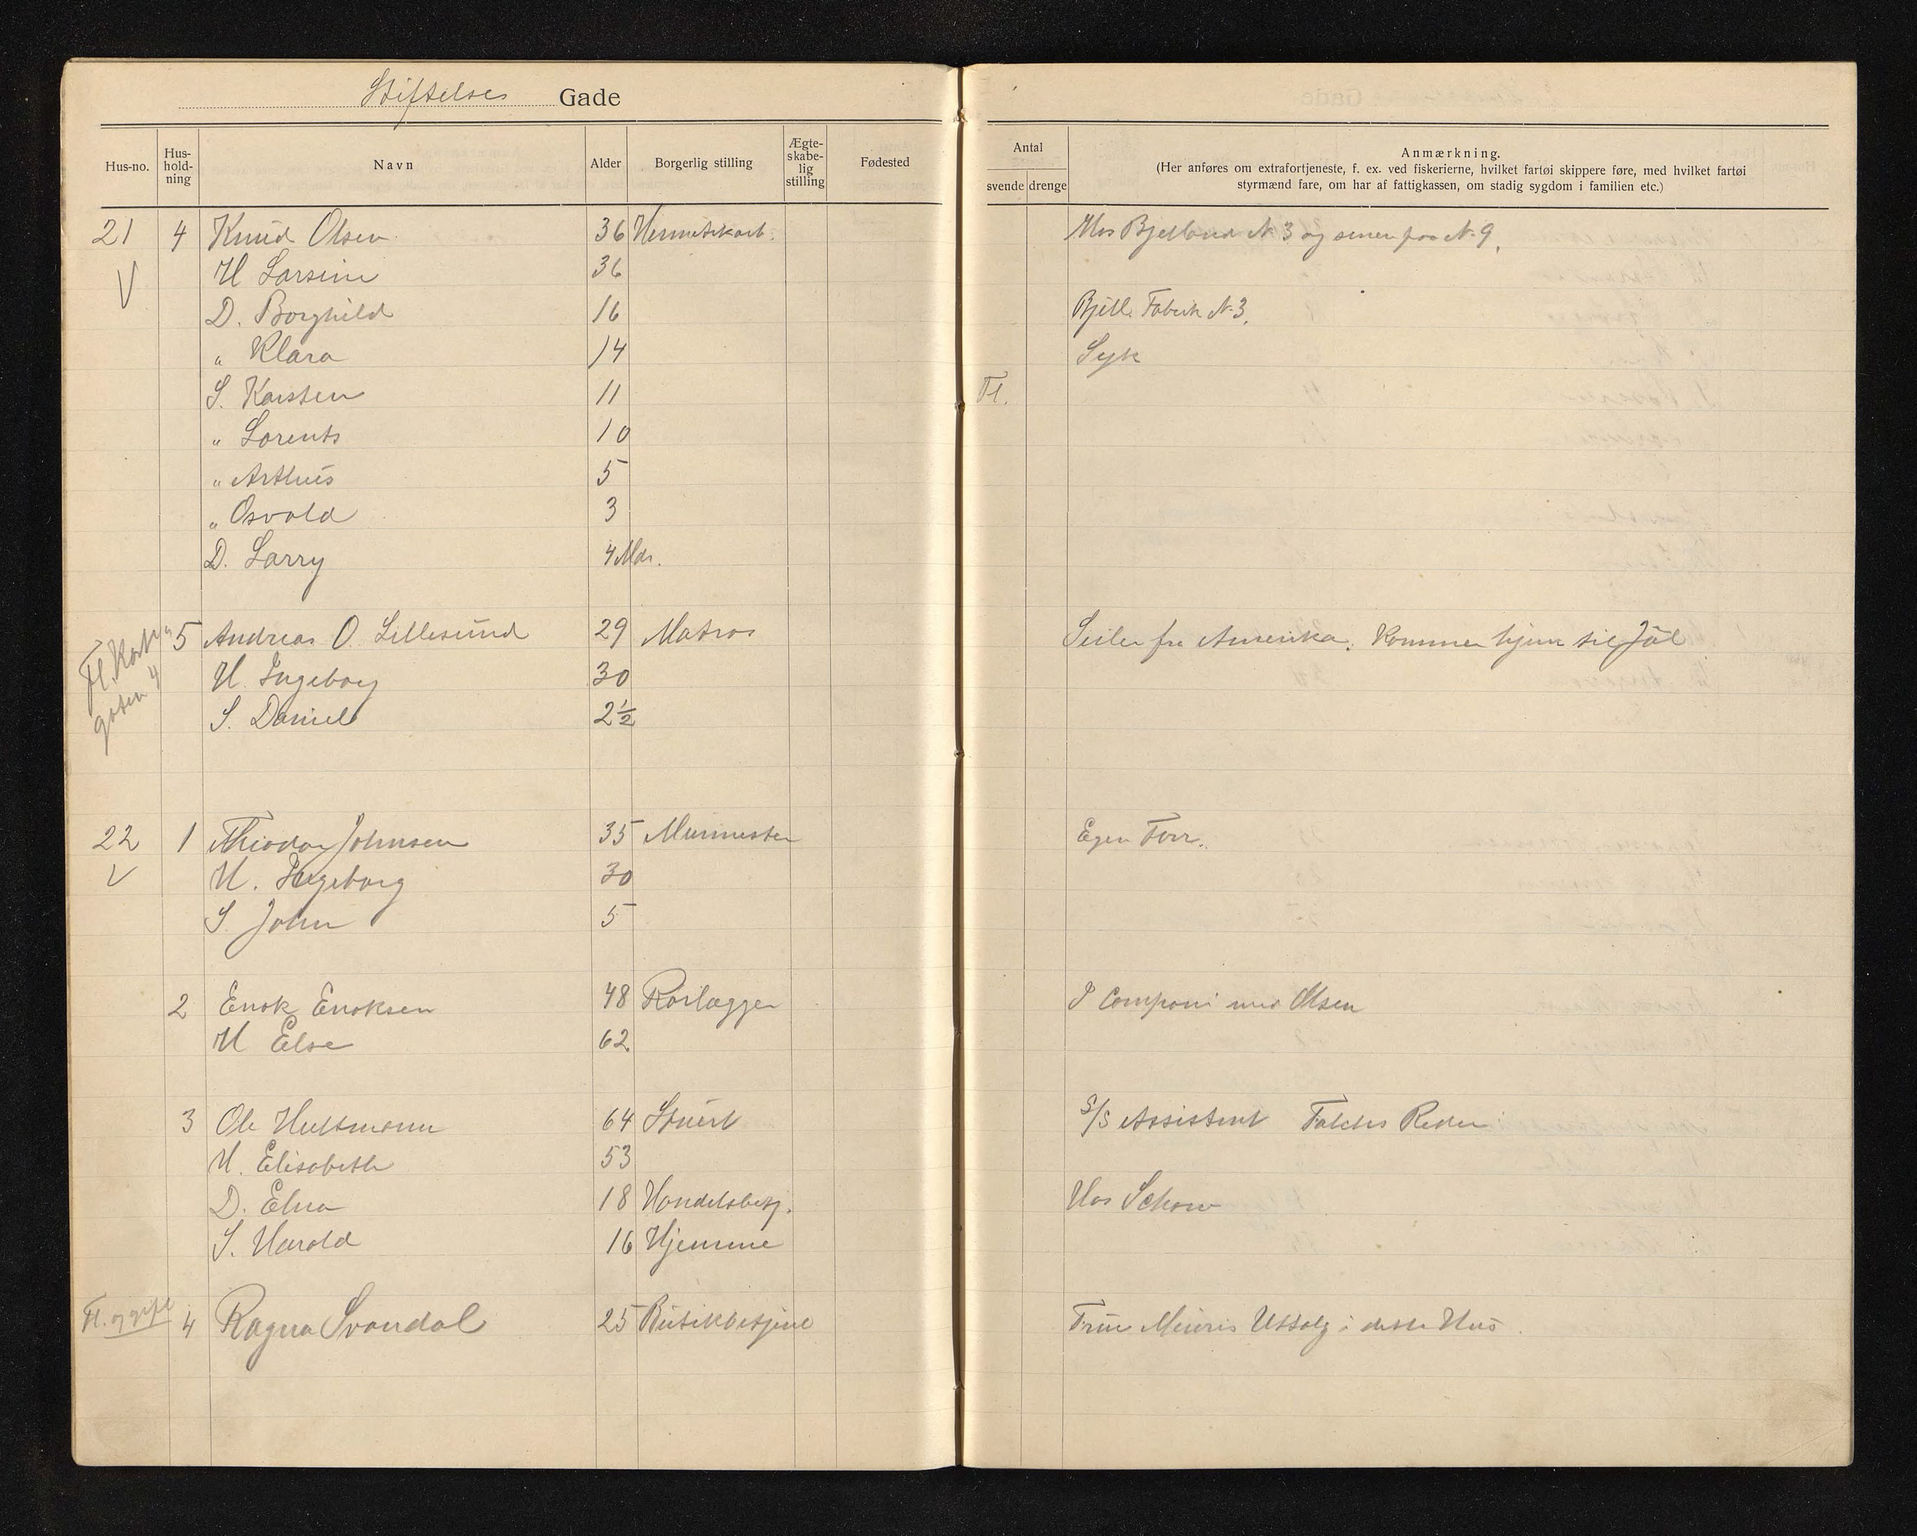 Stiftelses Gade
Hus-no. Hus-hold-ning Navn Alder Borgerlig stilling Ægte-skabe-lig stilling Fødested
Antal svende drenge
Anmærkning.
(Her anføres om extrafortjeneste, f. ex. ved fiskerierne, hvilket fartøi skippere føre, med hvilket fartøi
styrmænd fare, om har af fattigkassen, om stadig sygdom i familien etc.)
21 4 Knud Olsen 36 Hermetikarb. Hos Bjelland N. 3 og paa N. 9.
H Larsine 36
D. Borghild 16 Bjell. Fabrik N. 3.
" Klara 14 Syk
S. Karsten 11 Fl.
" Lorents 10
" Arthur 5
" Osvald 3
D. Larry 4 Mdr.
Fl. 4
5 Andreas O. Lillesund 29 Matros Seiler fra Amerika. Kommer hjem til Jül
H Ingeborg 30
S. Daniel 2½
22 1 Theodor Johnsen 35 Murmester Egen Forr.
H. Ingeborg 30
S. John 5
2 Enok Enoksen 48 Rørlægger I Compani med Olsen
H Else 62
3 Ole Hultmann 64 Stuert S/S Assistent Falcks Rederi
H. Elisabeth 53
D. Elna 18 Handelsbetj. Hos Schow
S. Harald 16 Hjemme
Fl. og gift 4 Ragna Svandal 25 Butikbetjent Frue Meieris Utsalg i dette Hus